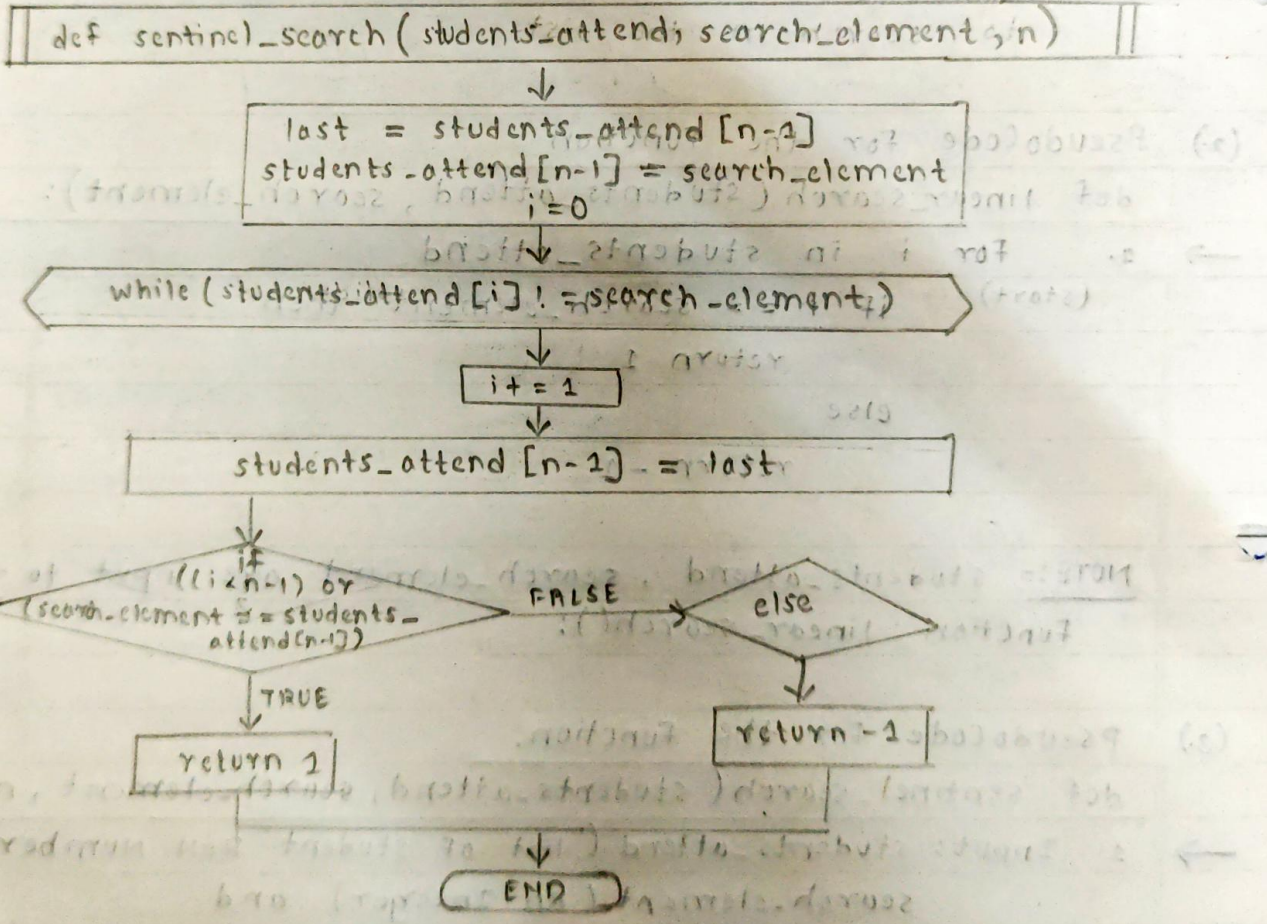 def sentinel_search(students_attend, search_element, n)
last = students_attend [n-1]
students_attend[n-1] = search_element
i=0
while (students_attend [i] != search_element)
i+=1
students_attend [n-1] = last
if
((i<n-1) or
(search_element == students_
attend[n-1]))
FALSE
else
TRUE
return 1
return -1
END